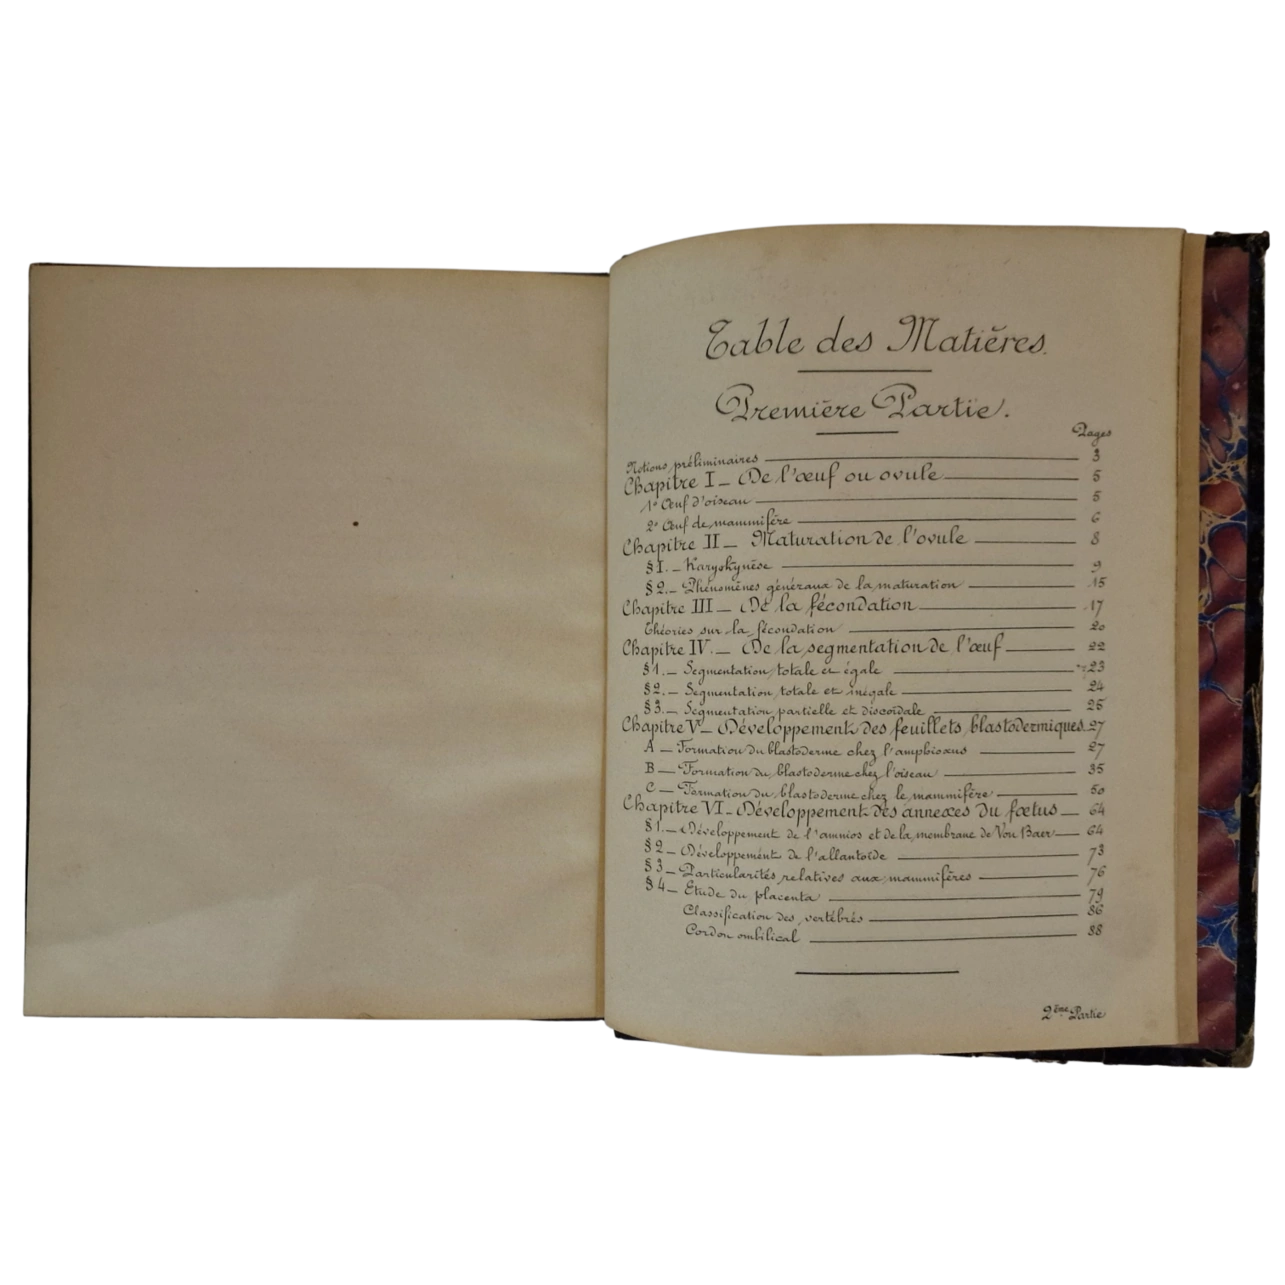 Table des Matières.
Première Partie.
Pages
Notions préliminaires 3
Chapitre I_ De l'œuf ou ovule 5
1º Œuf d'oiseau 5
2º Œuf de mammifère 6
Chapitre II_ Maturation de l'ovule 8
§I._ Karyokynèse 9
§2._ Phénomènes généraux de la maturation 15
Chapitre III_ De la fécondation 17
Théories sur la fécondation 20
Chapitre IV._ De la segmentation de l'œuf 22
§1._ Segmentation totale et égale 23
§2._ Segmentation totale et inégale 24
§3._ Segmentation partielle et discoïdale 25
Chapitre V_ Développement des feuillets blastodermiques 27
A _ Formation du blastoderme chez l'amphioxus 27
B _ Formation du blastoderme chez l'oiseau 35
C _ Formation du blastoderme chez le mammifère 50
Chapitre VI_ Développement des annexes du fœtus 64
§1._ Développement de l'amnios et de la membrane de Von Baer 64
§2_ Développement de l'allantoïde 73
§3_ Particularités relatives aux mammifères 76
§4_ Etude du placenta 79
Classification des vertébrés 86
Cordon ombilical 88
2ème Partie